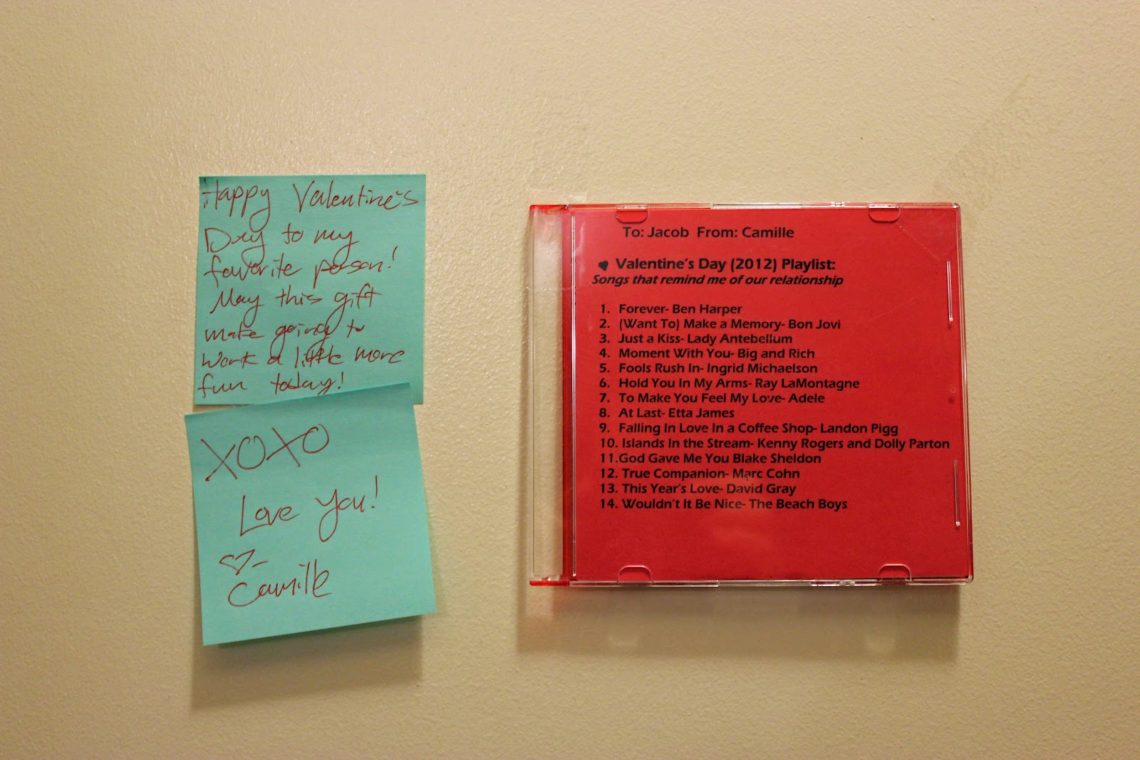 Happy Valentine's
Day to my
favorite person!
May this gift
make going to
work a little more
fun today!
XOXO
Love you!
♡-
Camille
To: Jacob From: Camille
♥ Valentine's Day (2012) Playlist:
Songs that remind me of our relationship
1. Forever- Ben Harper
2. (Want To) Make a Memory- Bon Jovi
3. Just a Kiss- Lady Antebellum
4. Moment With You- Big and Rich
5. Fools Rush In- Ingrid Michaelson
6. Hold You In My Arms- Ray LaMontagne
7. To Make You Feel My Love- Adele
8. At Last- Etta James
9. Falling In Love In a Coffee Shop- Landon Pigg
10. Islands In the Stream- Kenny Rogers and Dolly Parton
11.God Gave Me You Blake Sheldon
12. True Companion- Marc Cohn
13. This Year's Love- David Gray
14. Wouldn't It Be Nice- The Beach Boys